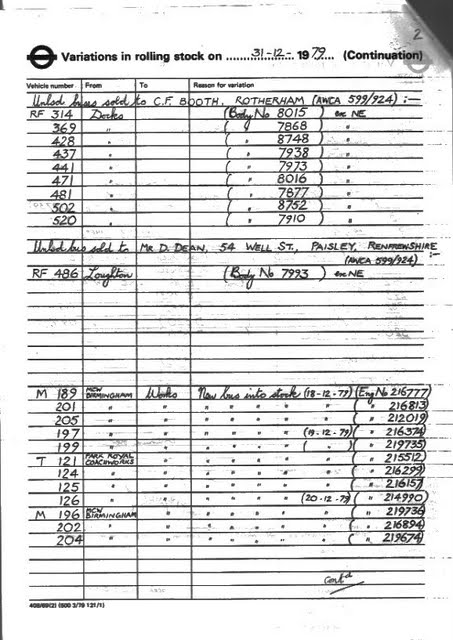 2
Variations in rolling stock on 31-12- 1979 (Continuation)
Vehicle number From To Reason for variation
Unlsd buses sold to C.F. BOOTH, ROTHERHAM (AWCA 599/924) :—
RF 314 Docks (Body No 8015) exc NE
369 " ( " 7868 ) "
428 " ( " 8748 ) "
437 " ( " 7938 ) "
441 " ( " 7973 ) "
471 " ( " 8016 ) "
481 " ( " 7877 ) "
502 " ( " 8752 ) "
520 " ( " 7910 ) "
Unlsd bus sold to MR D. DEAN, 54 WELL ST., PAISLEY, RENFREWSHIRE
(AWCA 599/924) :—
RF 486 Loughton (Body No 7993) exc NE
M 189 MCW BIRMINGHAM Works New bus into stock (18-12-79) (Eng No 216777
201 " " " " " " " ( " 216813
205 " " " " " " " ( " 212019
197 " " " " " " (19-12-79) ( " 216374
199 " " " " " " ( " ) ( " 219735
T 121 PARK ROYAL COACHWORKS " " " " " " ( " 215512
124 " " " " " " " ( " 216299
125 " " " " " " " ( " 216157
126 " " " " " " (20-12-79) ( " 214990
M 196 MCW BIRMINGHAM " " " " " " ( " 219736
202 " " " " " " " ( " 216894
204 " " " " " " " ( " 219674)
Contd
408/69(2) (500 3/79 121/1)